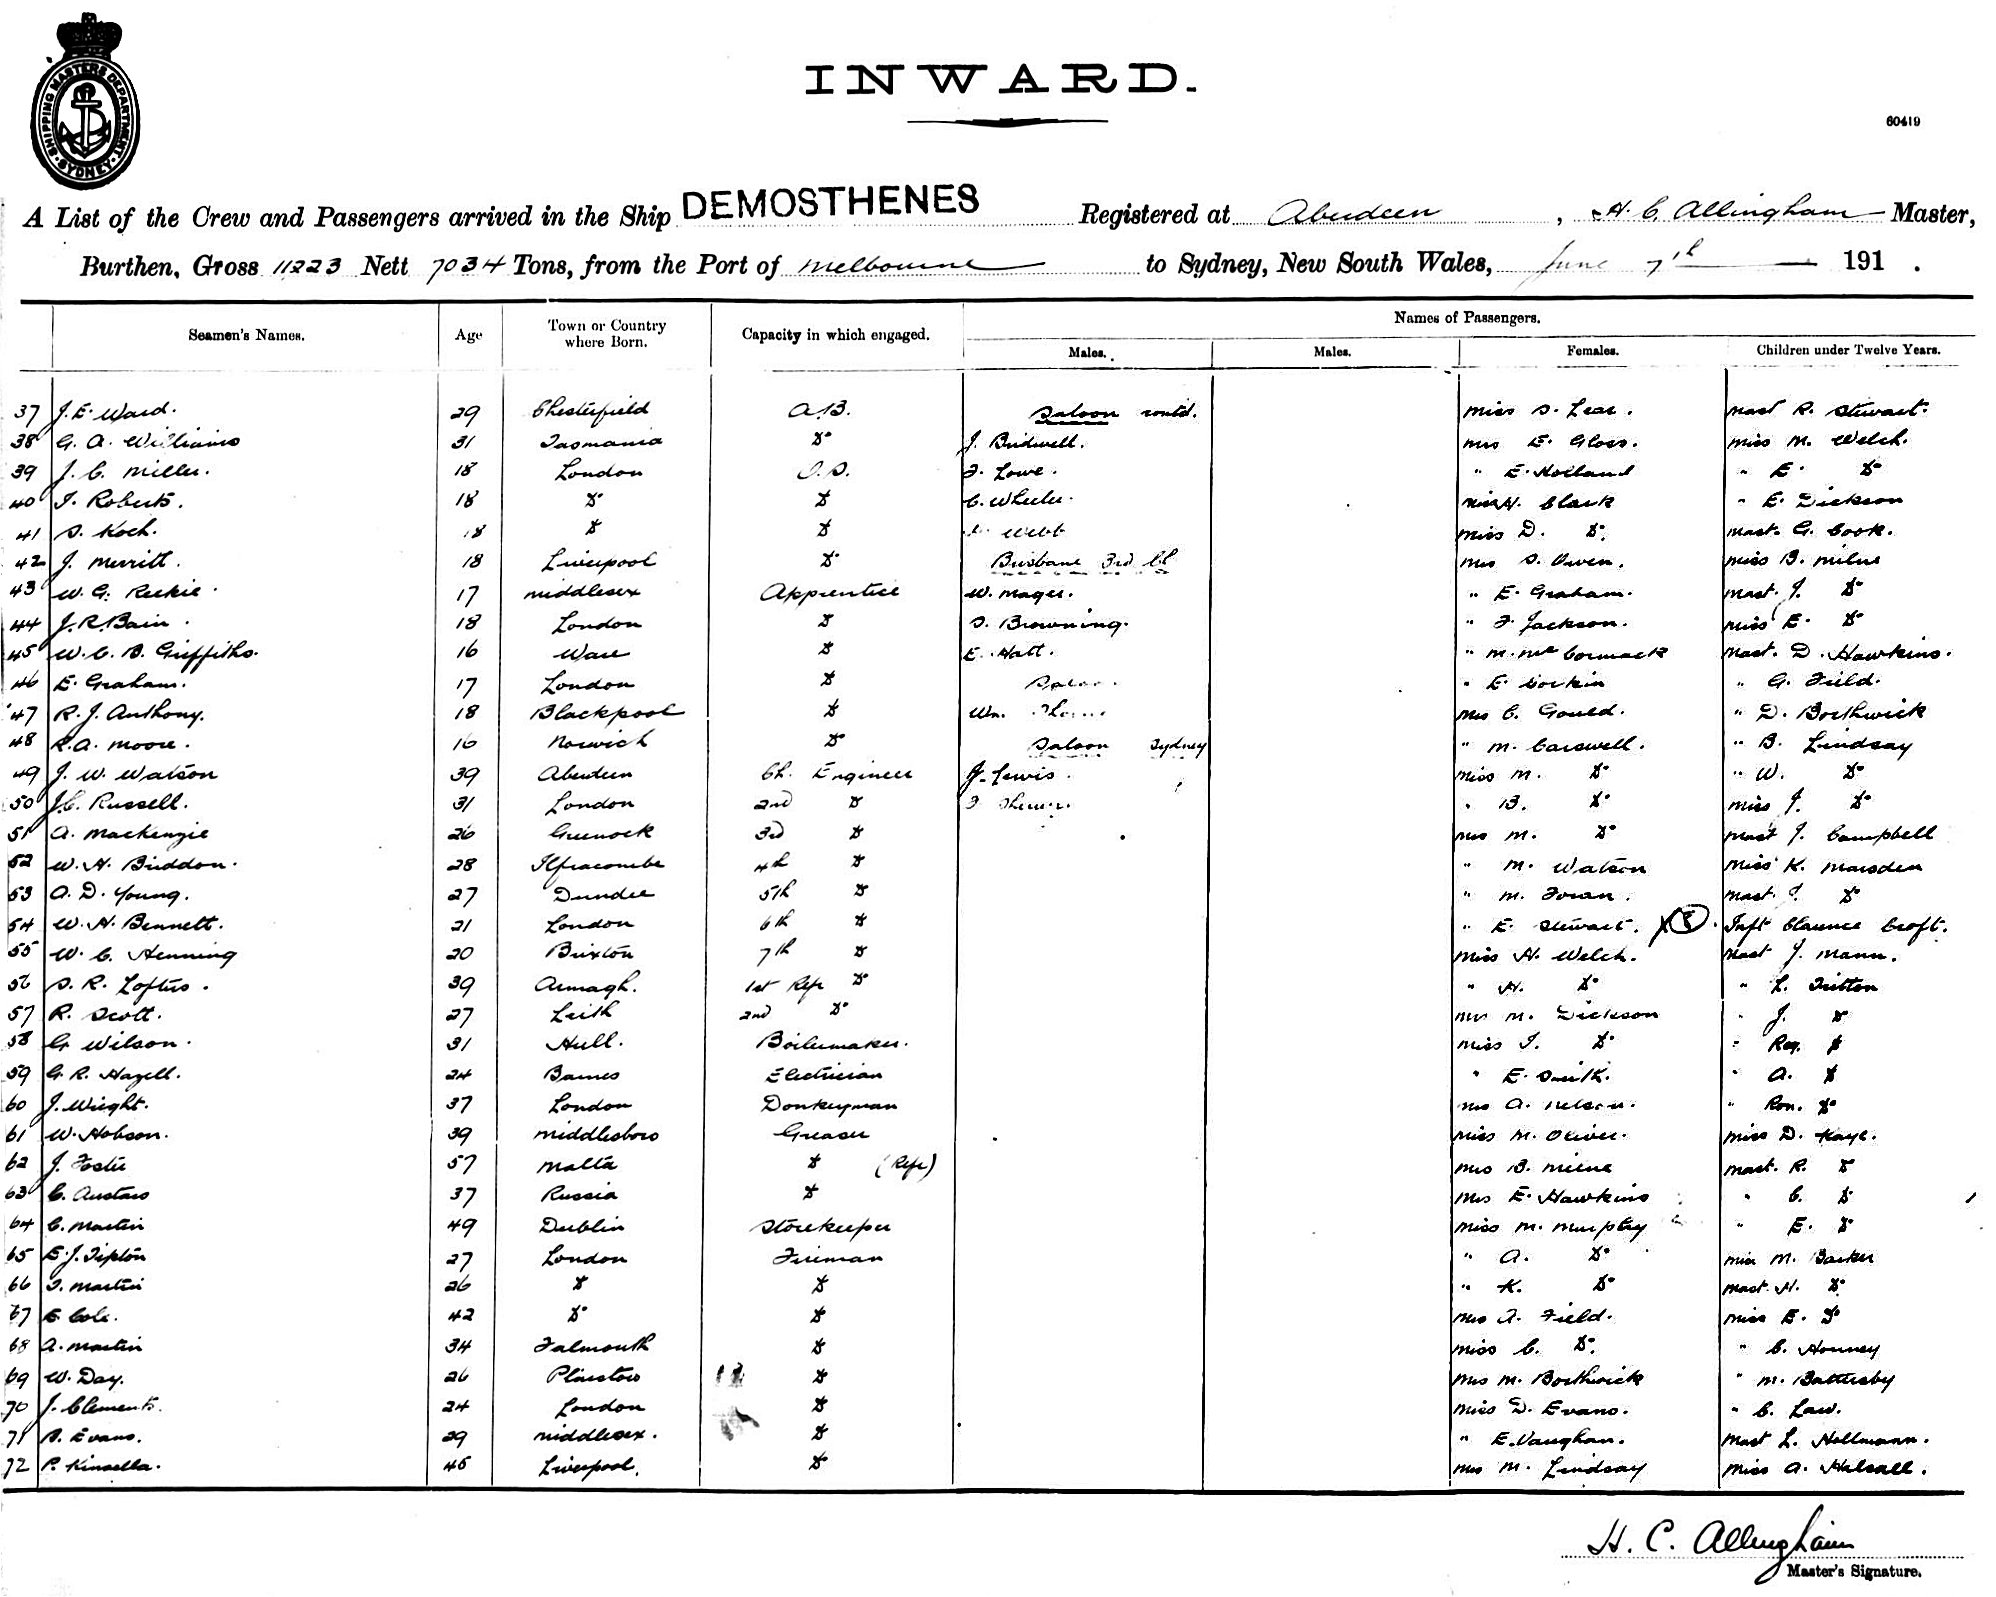 SHIPPING MASTERS DEPARTMENT SYDNEY
INWARD.
60419
A List of the Crew and Passengers arrived in the Ship DEMOSTHENES Registered at Aberdeen, H. C. Allingham Master,
Burthen, Gross 11223 Nett 7034 Tons, from the Port of Melbourne to Sydney, New South Wales, June 7th 191 .
Names of Passengers.
Seamen's Names. Age Town or Country where Born. Capacity in which engaged. Males. Males. Females. Children under Twelve Years.
37 J. E. Ward. 29 Chesterfield A.B. Saloon contd. Miss S. Lear. Mast R. Stewart.
38 G. A. Williams 31 Tasmania Do J. Bridwell. Mrs E. Gloss. Miss M. Welch.
39 J. C. Miller. 18 London O.S. F. Lowe. " E. Holland " E. Do
40 J. Roberts. 18 Do Do C. Wheeler. Miss H. Clark " E. Dickson
41 S. Koch. 18 Do Do Webb Miss D. Do. Mast. G. Cook.
42 J. Merritt. 18 Liverpool Do Brisbane 3rd Cl Mrs S. Owen. Miss B. Milne
43 W. G. Reekie. 17 Middlesex Apprentice W. Mager. " E. Graham. Mast. J. Do
44 J. R. Bain. 18 London Do S. Browning. " F. Jackson. Miss E. Do
45 W. C. B. Griffiths. 16 Ware Do E. Hatt. " M. McCormack Mast. D. Hawkins.
46 E. Graham. 17 London Do " E. Corkin " G. Field.
47 R. J. Anthony. 18 Blackpool Do Wm. Mrs C. Gould. " D. Borthwick
48 R. A. Moore. 16 Norwich Do Saloon Sydney " M. Carswell. " B. Lindsay
49 J. W. Watson 39 Aberdeen Ch. Engineer J. Lewis. Miss M. Do " W. Do
50 J. C. Russell. 31 London 2nd Do " B. Do Miss J. Do
51 A. Mackenzie 26 Greenock 3rd Do Mrs M. Do Mast J. Campbell
52 W. H. Biddon. 28 Ilfracombe 4th Do " M. Watson Miss K. Marsden
53 A. D. Young. 27 Dundee 5th Do " M. Foran. Mast. J. Do
54 W. H. Bennett. 21 London 6th Do " E. Stewart. X 8. Inft Clarence Croft.
55 W. C. Henning 20 Brixton 7th Do Miss H. Welch. Mast J. Mann.
56 S. R. Loftus. 39 Armagh. 1st Refr Do " H. Do " L. Tritton
57 R. Scott. 27 Leith 2nd Do Mrs M. Dickson " J. Do
58 G Wilson. 31 Hull. Boilermaker. Miss I. Do " Reg. Do
59 G. R. Hazell. 24 Barnes Electrician " E. Smith. " A. Do
60 J. Wright. 37 London Donkeyman Mrs A. Nelson. " Ron. Do
61 W. Hobson. 39 Middlesboro Greaser Miss M. Oliver. Miss D. Kaye.
62 J. Foster 57 Malta Do (Refr) Mrs B. Milne Mast. R. Do
63 C. Austars 37 Russia Do Mrs E. Hawkins " C. Do
64 C. Martin 49 Dublin Storekeeper Miss M. Murphy " E. Do
65 E. J. Tipton 27 London Fireman " A. Do Miss M. Barker
66 T. Martin 26 Do Do " K. Do Mast. H. Do
67 E Cole. 42 Do Do Mrs A. Field. Miss E. Do
68 A. Martin 34 Falmouth Do Miss C. Do. " C. Honney
69 W. Day. 26 Plaistow Do Mrs M. Borthwick " M. Battersby
70 J. Clements. 24 London Do Miss D. Evans. " C. Law.
71 S. Evans. 29 Middlesex. Do " E. Vaughan. Mast L. Hollmann.
72 P. Kinsella. 45 Liverpool. Do Mrs M. Lindsay Miss A. Halsall.
H. C. Allingham
Master's Signature.